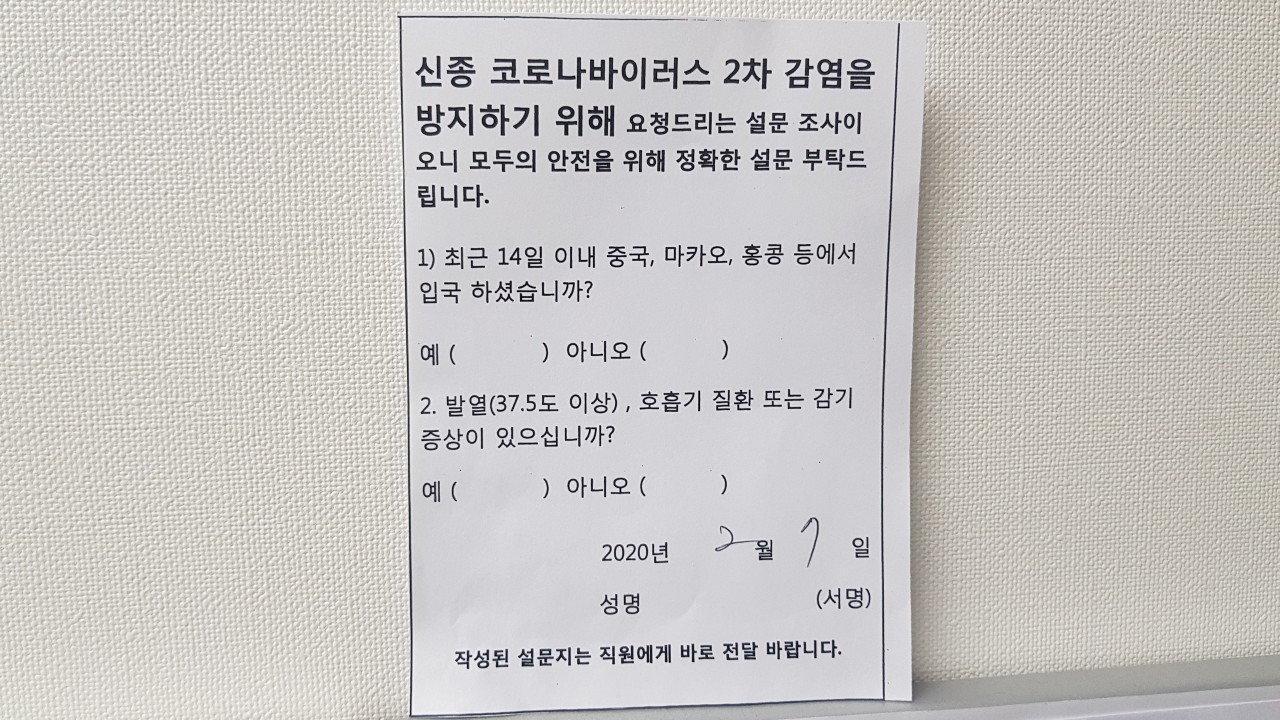 신종 코로나바이러스 2차 감염을
방지하기 위해 요청드리는 설문 조사이
오니 모두의 안전을 위해 정확한 설문 부탁드
립니다.
1) 최근 14일 이내 중국, 마카오, 홍콩 등에서
입국 하셨습니까?
예 (          ) 아니오 (          )
2. 발열(37.5도 이상) , 호흡기 질환 또는 감기
증상이 있으십니까?
예 (          ) 아니오 (          )
2020년 2월 7일
성명 (서명)
작성된 설문지는 직원에게 바로 전달 바랍니다.